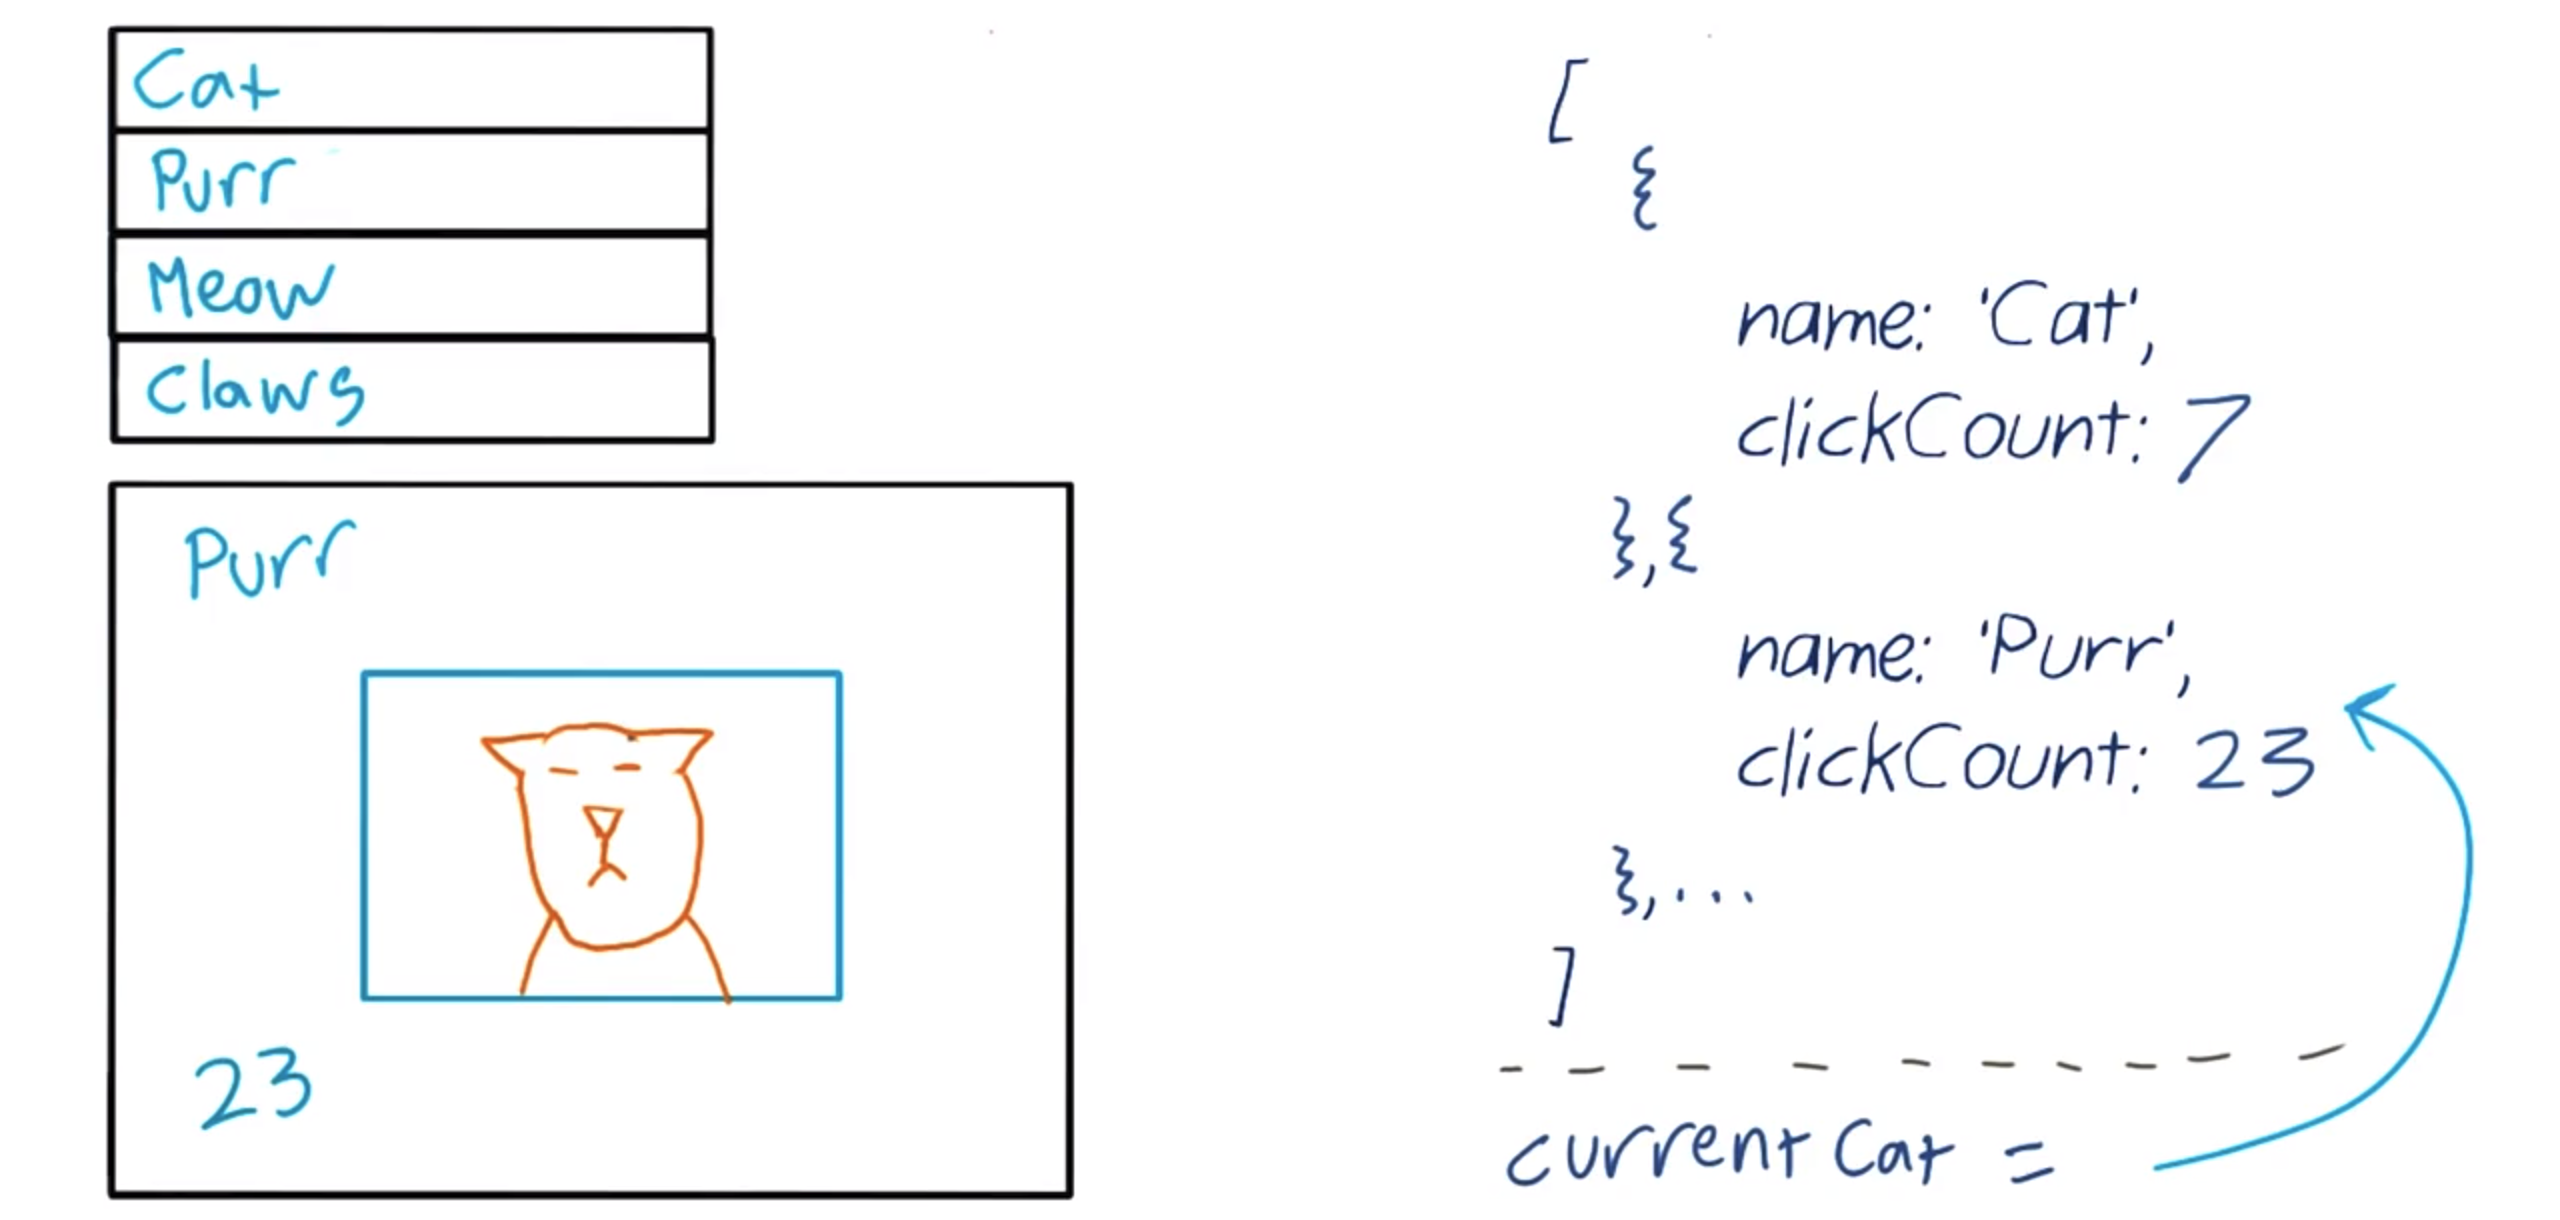 Cat
Purr
Meow
Claws
Purr
23
[
{
name: 'Cat',
clickCount: 7
},{
name: 'Purr',
clickCount: 23
},...
]
currentCat =